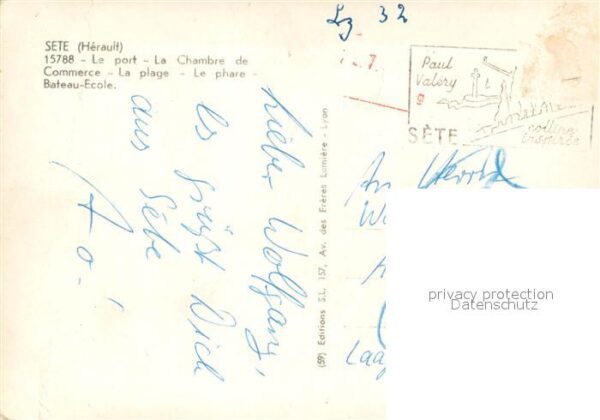 Lz 32
SETE (Hérault)
15788 - Le port - La Chambre de
Commerce - La plage - Le phare -
Bateau-École.
Paul
Valéry
SÈTE
colline
inspirée
Lieber Wolfgang,
es grüßt Dich
aus Sète
(59) Editions S.L. 157, Av. des Frères Lumière - Lyon
An Herrn
privacy protection
Datenschutz